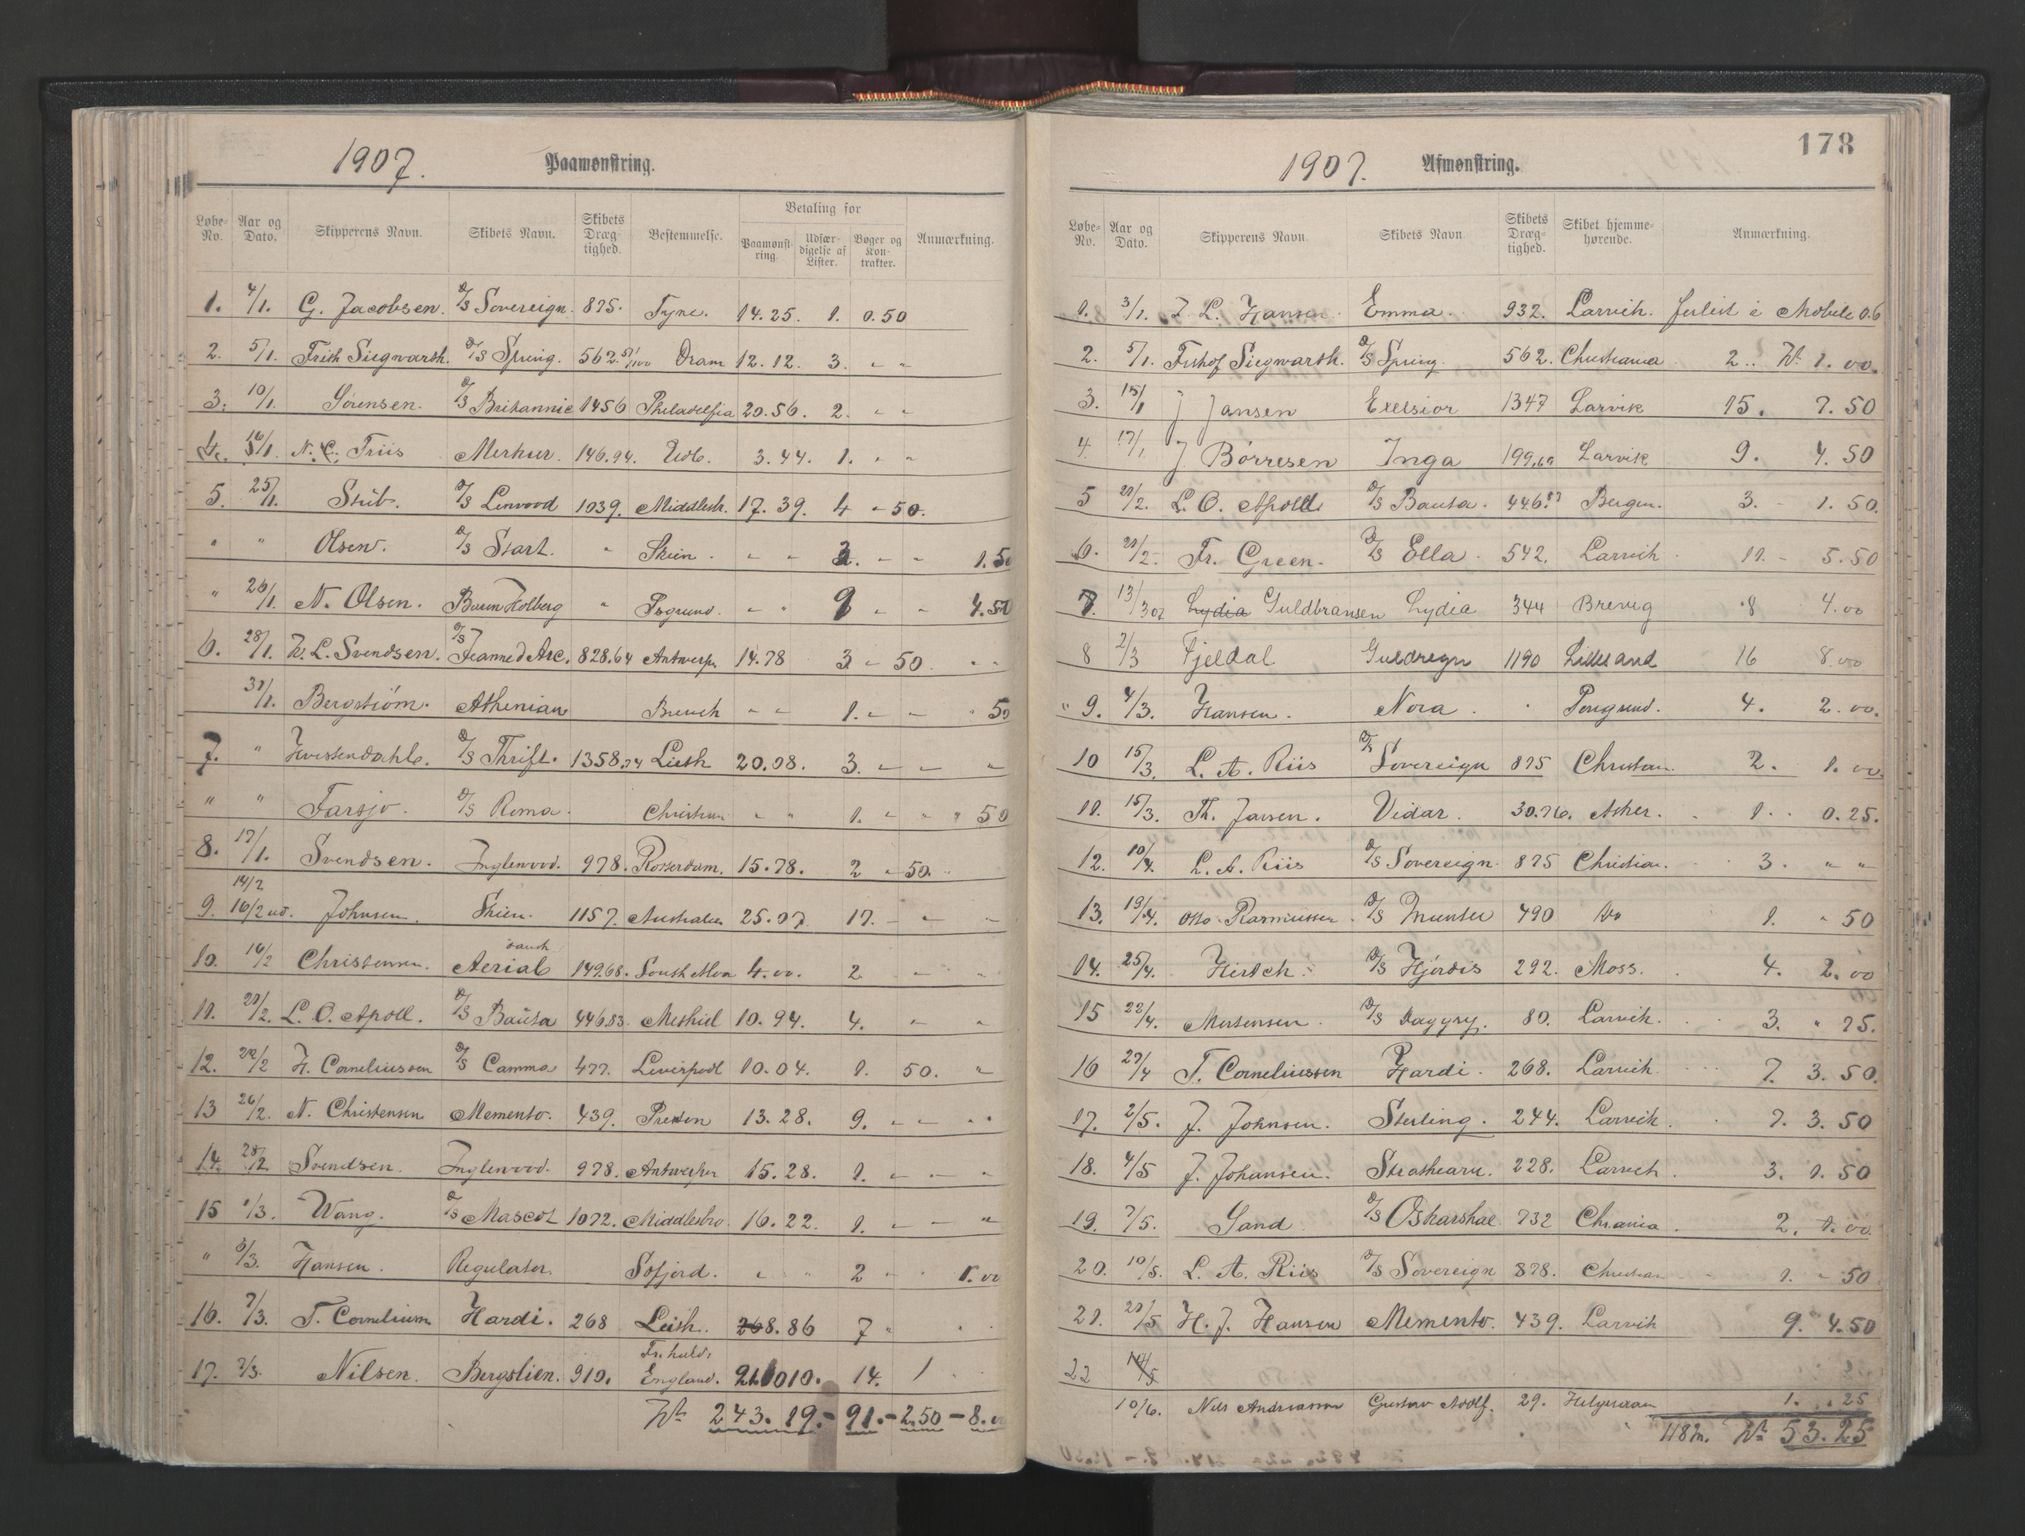 1907. Paamønstring.
Løbe-No. Aar og Dato. Skipperens Navn. Skibets Navn. Skibets Dræg-tighed. Bestemmelse. Betaling for Paamønst-ring. Udfær-digelse af Lister. Bøger og Kon-trakter. Anmærkning.
1. 4/1. G. Jacobsen. D/S Sovereign. 875. Tyne. 14.25. 1. 0.50
2. 5/1. D/S Spring. 562. Dram 12.12. 3. " "
3. 10/1. Sørensen. D/S Britannic 1456 Philadelfia 20.56. 2. " "
4. N. C. Friis Merkur. 146.94. 3.44. 1. " "
5. 25/1. Stub. D/S Linwood 1039. Middlesb. 17.39. 4 " 50.
" " Olsen. D/S Start. " Skien. " " " " 1.50
" 26/1. N. Olsen. Baron Holberg " Psgrund. " " 9 " " 4.50
6. 28/1. H. L. Svendsen. D/S Jeanne d'Arc. 828.64 Antwerpn 14.78 3 " 50. " "
31/1. Bergstrøm. Athenian " " 1. " " " 50
7. " Hvistendahl. D/S Thrift. 1358.74 Leith 20.08. 3. " " "
" " Farsjø. D/S Roma. Christian " " 1. " " " 50
8. 17/1. Svendsen. Inglewood. 978. Rotterdam. 15.78. 2 " 50. "
9. 14/2 16/2 ud. Johnsen. Skien. 1157. Australien 25.07 17. " " "
10. 16/2 Christensen. Aerial 149.68. 4.00. 2 " "
11. 21/2. L. O. Apoll. D/S Bauta 446.83. 10.94. 4. " "
12. 22/2 H. Corneliussen D/S Camma 477. Liverpool 10.04. 1. 50. "
13 26/2. N. Christensen Memento. 439. Preston 13.28. 9. " " " "
14. 28/2. Svendsen. Inglewood. 978. Antwerpn 15.28. 1. " " "
15 1/3. Wang. D/S Mascot 1072. Middlesbro. 16.22. 1. " " "
" 3/3. Hansen. Regulator. Sofjord. " " 2 " 1.00
16. 7/3. T. Cornelium Hardi. 268 Leith. 8.86 7 " "
17. 7/3. Nilsen. Bergslien. 910. England. 14. 1
Kr 243.19.- 91.- 2.50 - 8.00
178
1907. Afmønstring.
Løbe-No. Aar og Dato. Skipperens Navn. Skibets Navn. Skibets Dræg-tighed. Skibet hjemme-hørende. Anmærkning.
1. 3/1. L. Hansen. Emma. 932. Larvik. forlist i Mobile 06
2. 5/1. D/S Spring. 562. Christiania 2.. Kr 1.00.
3. 15/1 J Jansen Exelsior 1347 Larvik 15. 7.50
4 17/1. J Børresen Inga 199,69 Larvik 9. 4.50
5 21/2. L. O. Apoll D/S Bauta. 446.83 Bergen. 3. - 1.50.
6. 21/2. Fr. Green. D/S Ella. 542. Larvik. 11. - 5.50
7. 13/3 07 Lydia Guldbransen Lydia 344 Brevig 8 4.00
8 2/3 Fjeldal Guldregn 1190 Lillesand 16 8.00
" 9. 4/3. Hansen. Nora. Porsgrund. 4. 2.00.
10 15/3. L. A. Riis D/S Sovereign 875 Christian. 2. 1.00.
11. 15/3. Th. Jansen. Vidar. 30.76. Asker. 1. 0.25.
12. 10/4. L. A. Riis D/S Sovereign. 875 Christian. 3. " "
13. 19/4. Otto Rasmussen. D/S Munter 490 Do 1. " 50
14. 25/4. Hirsch. D/S Hjørdis 292. Moss. 4. 2.00
15 22/4. Mortensen. D/S Daggry. 80. Larvik. 3. " 75.
16 27/4 T. Corneliussen Hardi. 268. Larvik. 7. 3.50.
17. 2/5. J. Johnsen. Sterling. 244. Larvik. 7. 3.50
18. 4/5 J. Johansen. Strathearn. 228. Larvik. 3. 1.50
19. 7/5. Sand. D/S Oskarshal 732 Chrania. 2. 1.00
20. 10/5. L. A. Riis D/S Sovereign 878. Christian 1. " 50
21. 21/5 H. J. Hansen Memento. 439. Larvik 9. 4.50
22
10/6. Nils Andreassen Gustav Adolf. 29. 1... 25
118 m. Kr 53.25